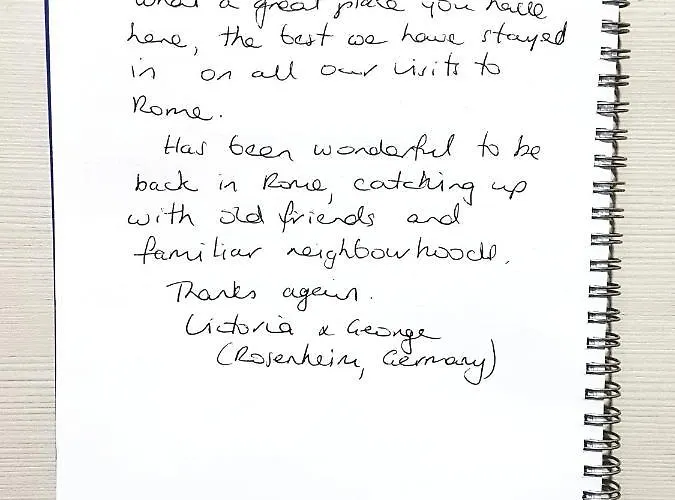 What a great place you have
here, the best we have stayed
in on all our visits to
Rome.
Has been wonderful to be
back in Rome, catching up
with old friends and
familiar neighbourhoods.
Thanks again.
Victoria & George
(Rosenheim, Germany)